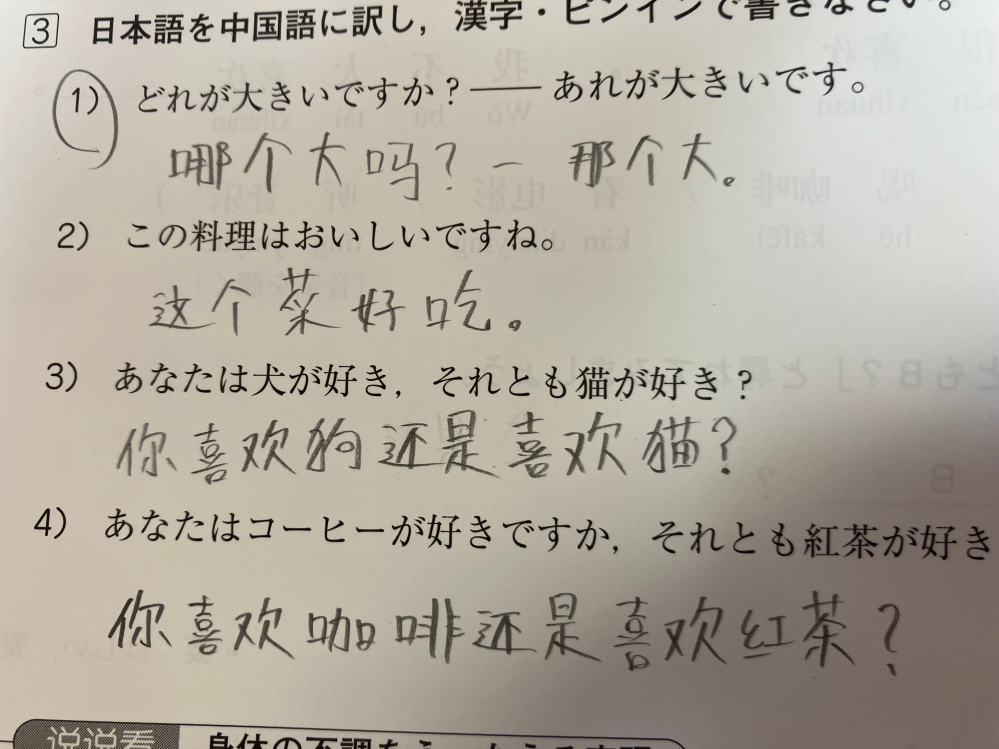 3 日本語を中国語に訳し，漢字・ピンインで書きなさい。
1） どれが大きいですか？── あれが大きいです。
哪个大吗？— 那个大。
2） この料理はおいしいですね。
这个菜好吃。
3） あなたは犬が好き，それとも猫が好き？
你喜欢狗还是喜欢猫？
4） あなたはコーヒーが好きですか，それとも紅茶が好き
你喜欢咖啡还是喜欢红茶？
说说看